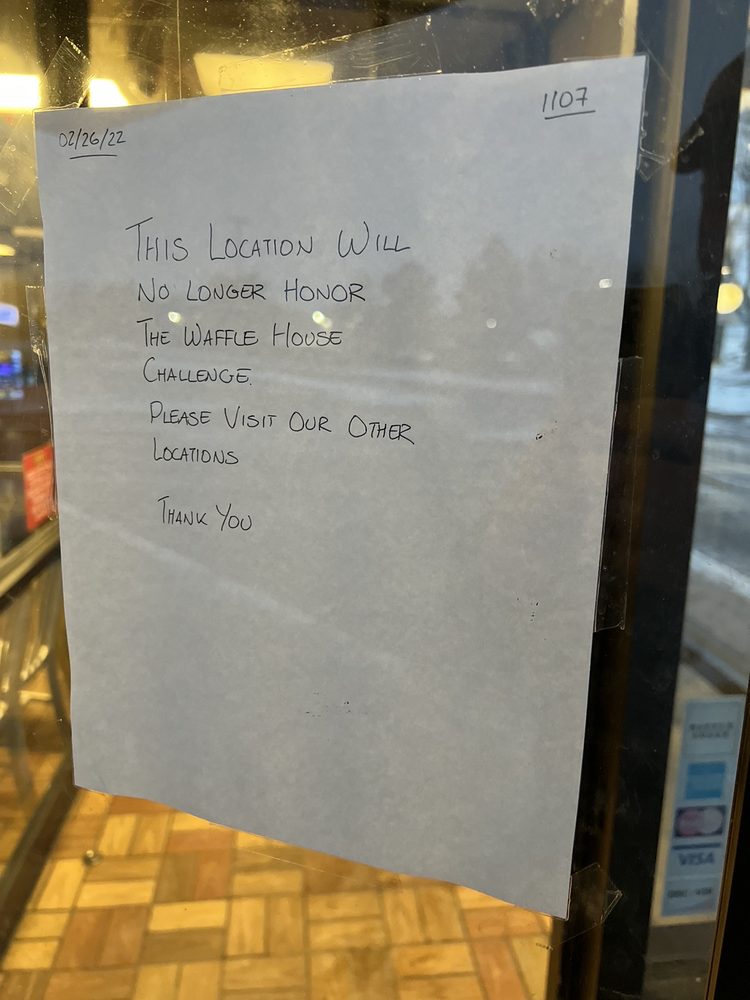 02/26/22
1107
THIS LOCATION WILL
NO LONGER HONOR
THE WAFFLE HOUSE
CHALLENGE.
PLEASE VISIT OUR OTHER
LOCATIONS
THANK YOU
VISA